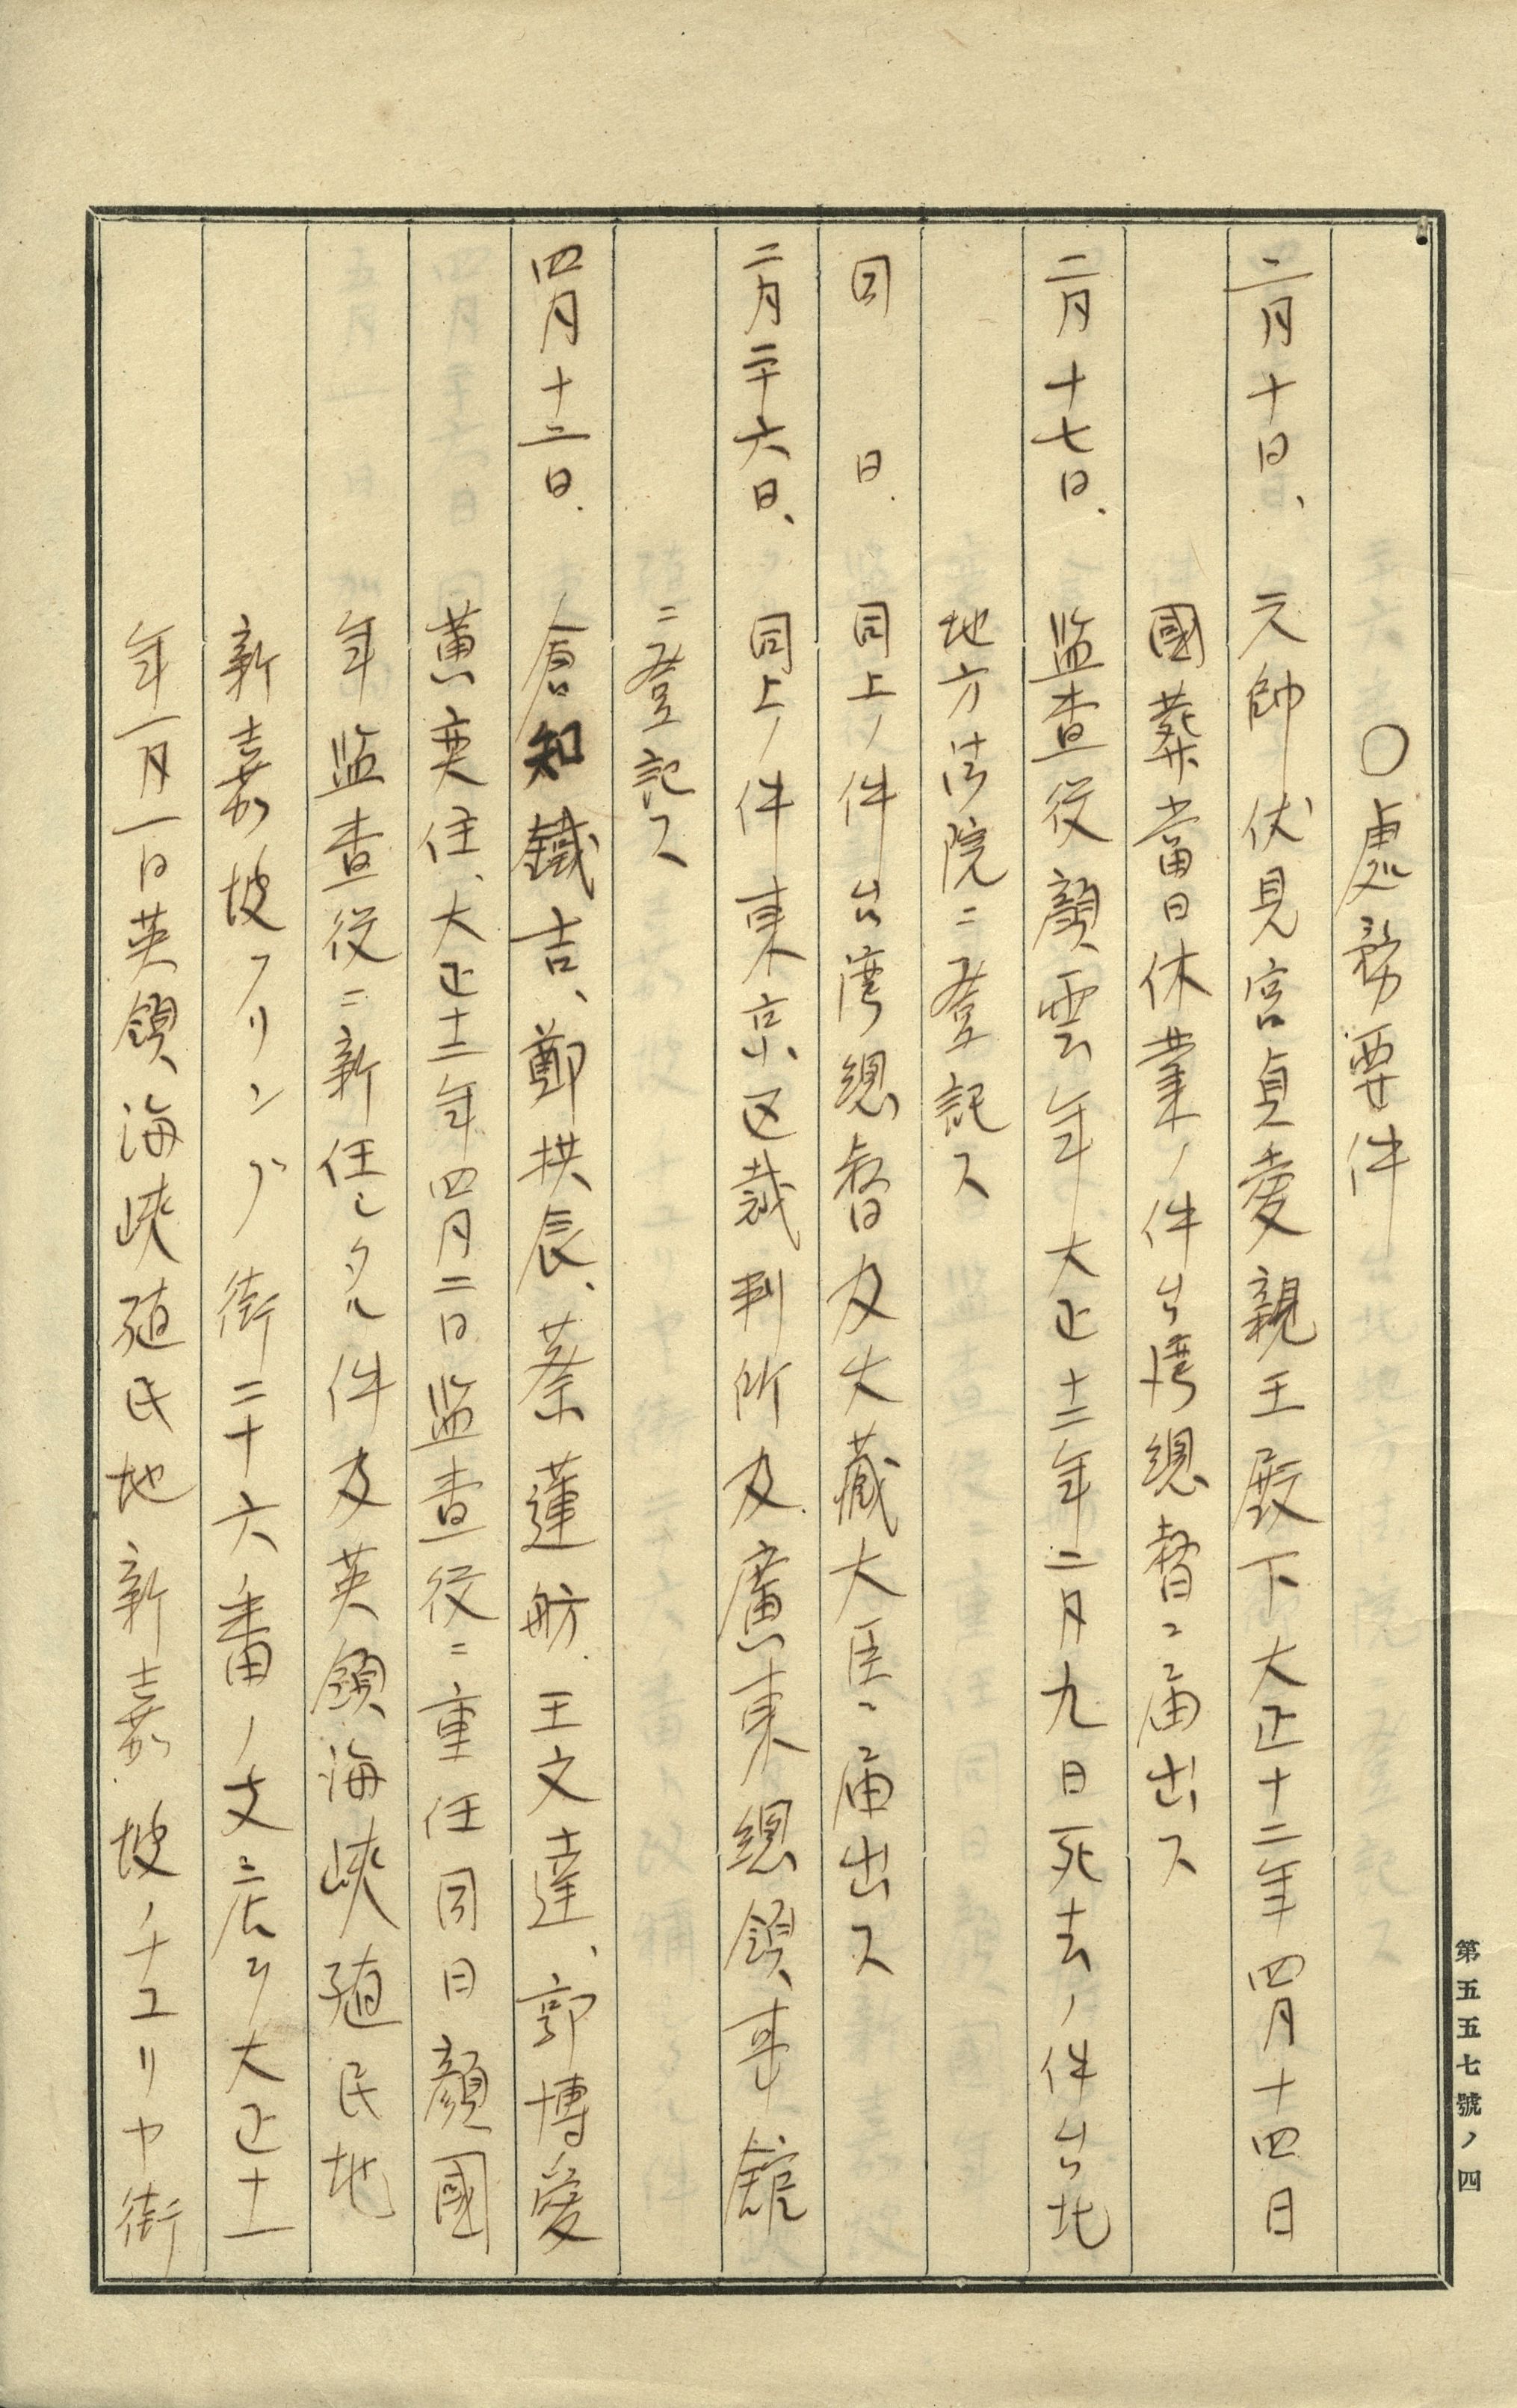 〇處務要件
二月十日、元帥伏見宮貞愛親王殿下大正十二年四月十四日
國葬當日休業ノ件台湾總督ニ届出ス
二月十七日、監査役顏雲年大正十二年二月九日死去ノ件台北
地方法院ニ登記ス
同日、同上ノ件台湾總督及大藏大臣ニ届出ス
二月二十六日、同上ノ件東京区裁判所及廣東總領事館
ニ登記ス
四月十二日、倉知鐵吉、鄭拱辰、蔡蓮舫、王文達、郭博愛
黄奕住、大正十二年四月二日監査役ニ重任同日顏國
年監査役ニ新任シタル件及英領海峽殖民地
新嘉坡フリント街二十六番ノ支店ヲ大正十一
年一月一日英領海峽殖民地新嘉坡ノチユリヤ街
第五五七號ノ四